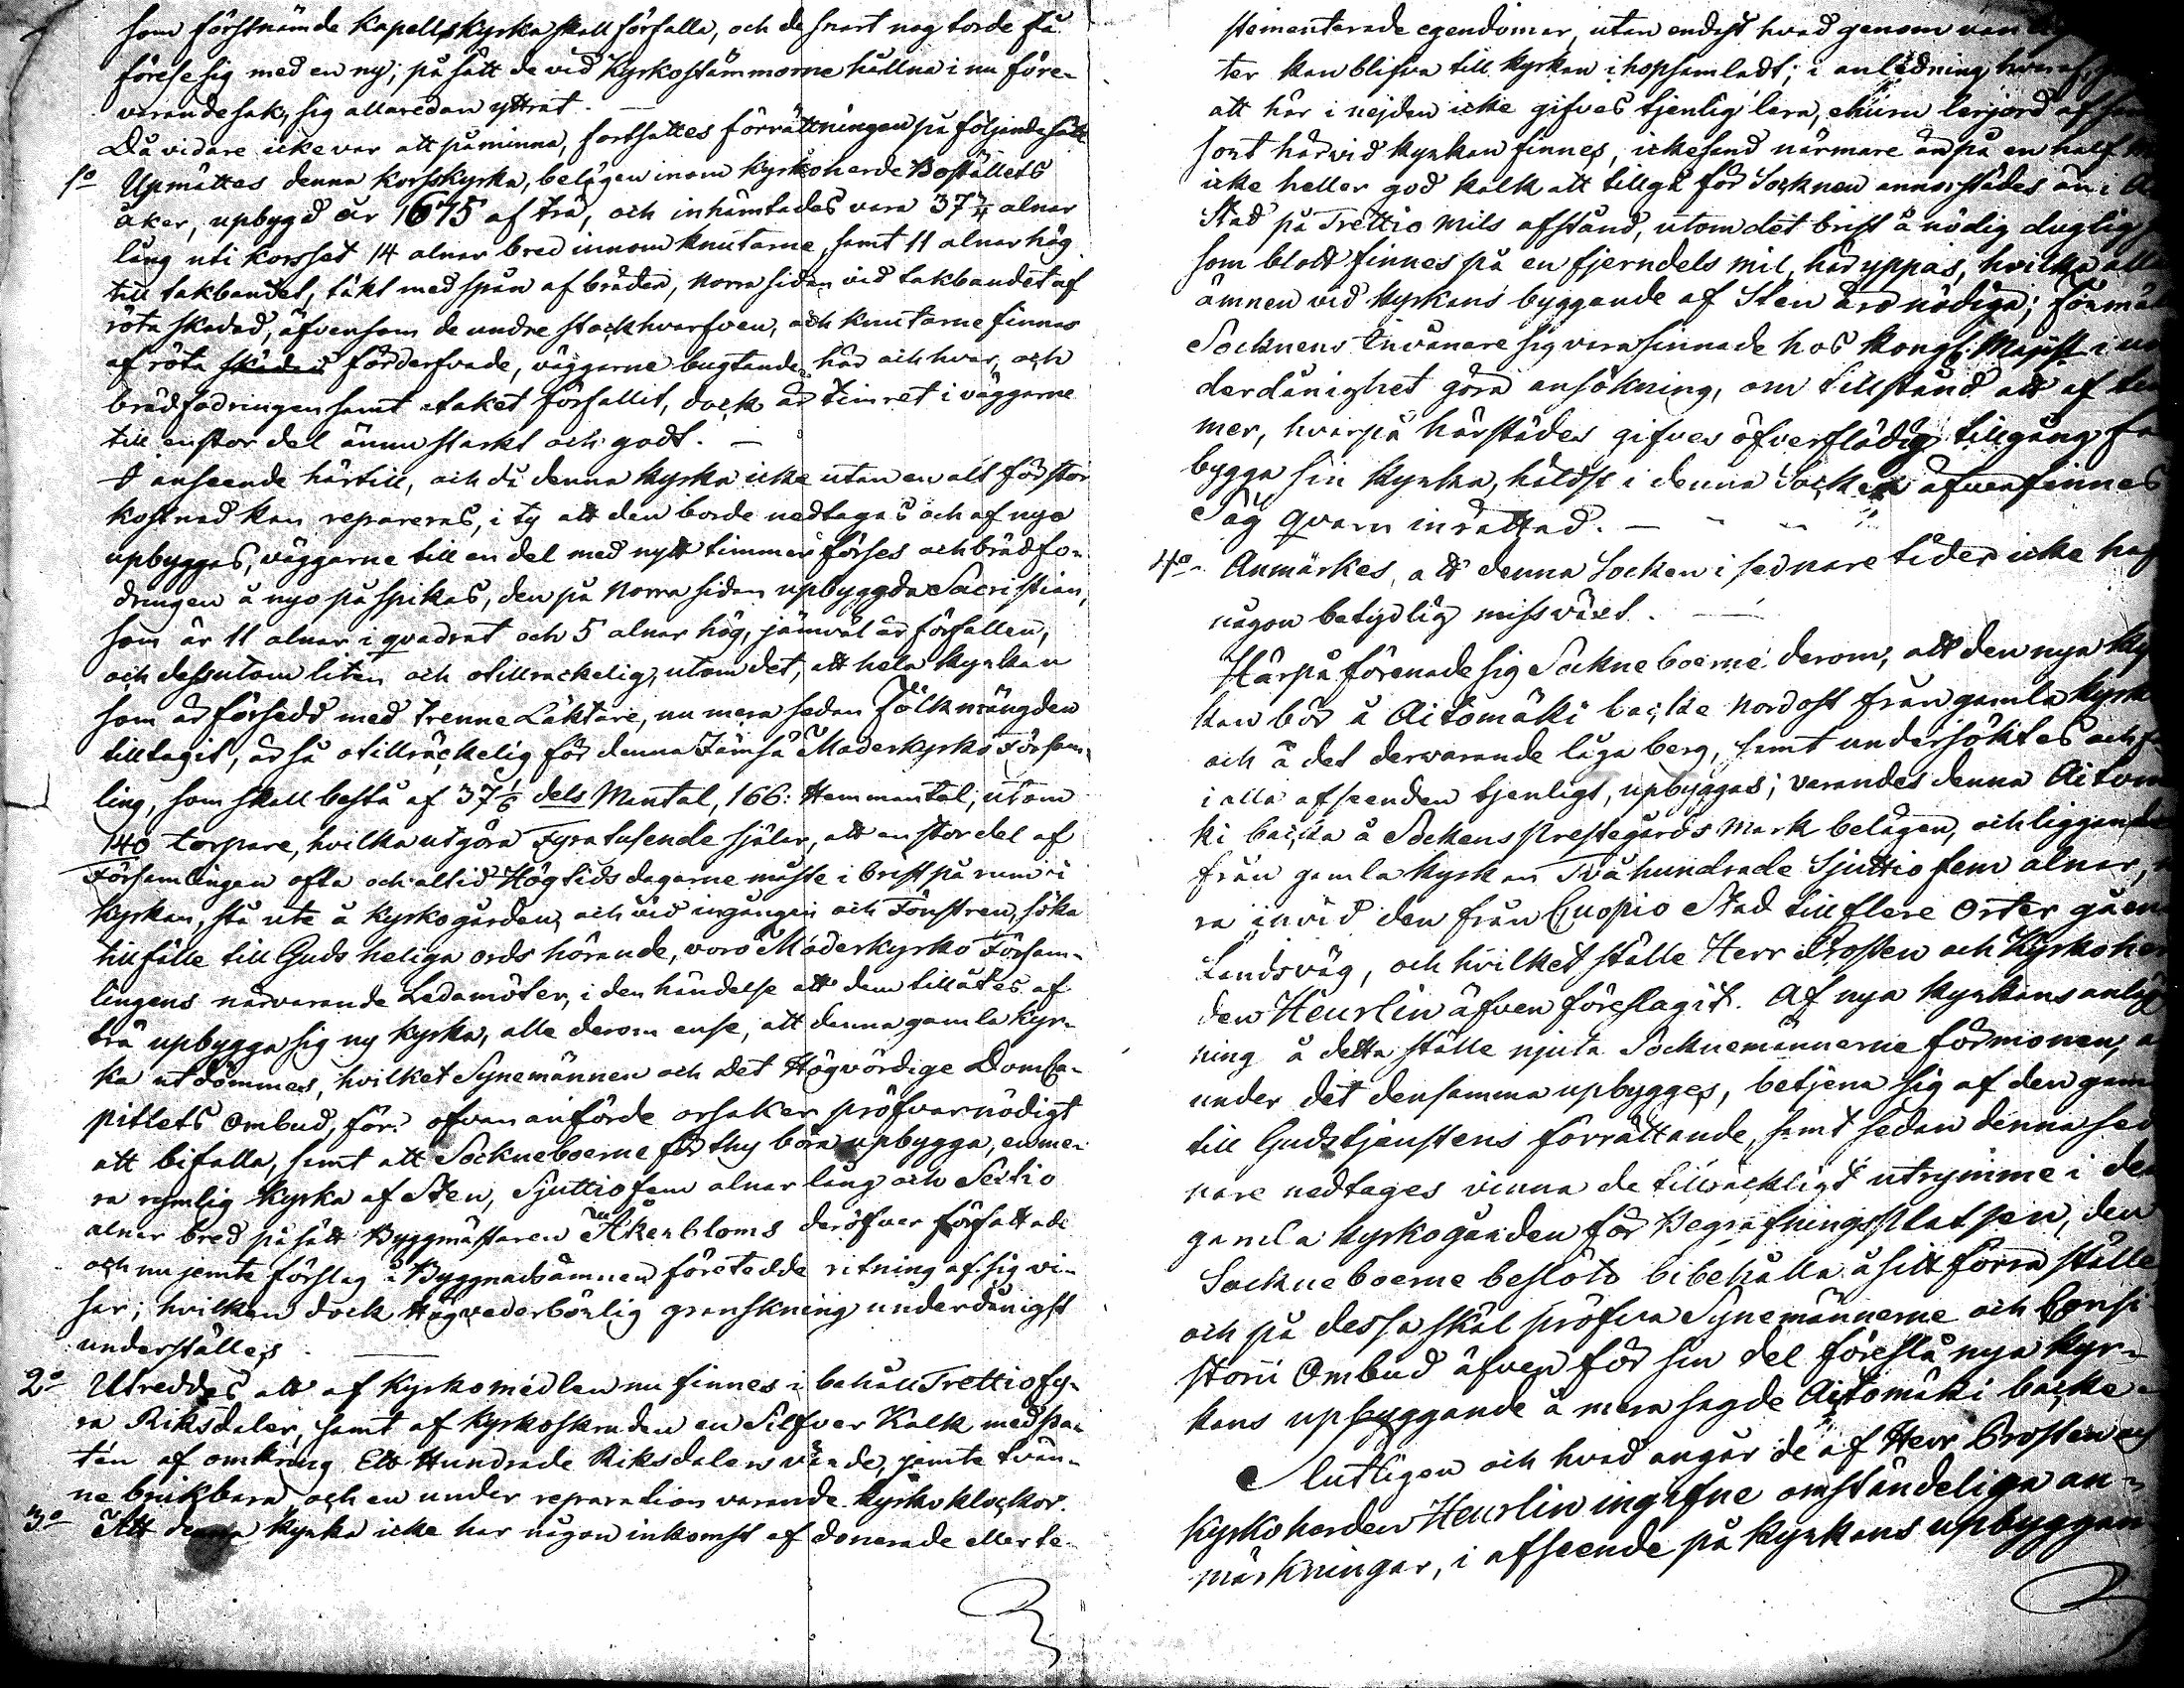 som förstnämde Kapellskyrka skall förfalla, och de snart nog torde få
förese sig med en ny; på sätt de vid Kyrkostämmorne hållna i nu före-
varande sak, sig allaredan yttrat. —
Då vidare icke var att påminna, fortsattes förrättningen på följande sätt
1o Upmättes denna Korskyrka, belägen inom Kyrkoherde Boställets
åker, upbygd år 1675 af trä, och inhämtades vara 37 1/4 alnar
lång uti korsset 14 alnar bred innom knutarne, samt 11 alnar hög
till takbandet, täkt med spån af bräder, norra sidan vid takbandet af
röta skadad, äfvensom de undre stockhvarfven, och knutarne finnas
af röta förderfvade, väggarne bugtande här och hvar, och
brädfodringen samt taket förfallit, dock är timret i väggarne
till en stor del ännu starkt och godt. —
I anseende härtill, och då denna kyrka icke utan en alt för stor
kostnad kan repareras, i ty att den borde nedtagas och af nyo
upbyggas, väggarne till en del med nytt timmer förses och brädfo-
dringen å nyo på spikas, den på norra sidan upbyggda Sacristian,
som är 11 alnar i qvadrat och 5 alnar hög, jämväl är förfallen,
och dessutom liten och otillräckelig, utom det, att hela kyrkan
som är försedd med trenne Läktare, nu mera sedan Folkmängden
tilltagit, är så otillräckelig för denna Jämsä Moderkyrko Försam-
ling, som skall bestå af 37 1/6 dels Mantal, 166: Hemmantal, utom
140 torpare, hvilka utgöra Fyratusende själar, att en stor del af
Församlingen ofta och altid Högtidsdagarne måste i brist på rum i
Kyrkan, stå ute å kyrkogården, och vid ingången och Fönstren, söka
tillfälle till Guds heliga ords hörande, voro Moderkyrko Försam-
lingens närvarande Ledamöter, i den händelse att dem tillåtes af
trä upbygga sig ny kyrka, alle derom ense, att denna gamla kyr-
ka utdömmes, hvilket Synemännen och Det Högvördige DomCa-
pitlets Ombud, för ofvan anförde orsaker pröfvar nödigt
att bifalla, samt att Sockneboerne för thy böra upbygga, en me-
ra rymlig kyrka af Sten, Sjuttiofem alnar lång och
alnar bred på sätt Byggmästaren Åkerbloms deröfver författade
och nu jemte förslag å Byggnadsämnen företedde ritning af sig vi-
sar; hvilken dock Högvederbörlig granskning underdånigst
underställes. —
2o Utreddes att af Kyrkomedlen nu finnes i behåll Trettiofy-
ra Riksdaler, samt af Kyrkoskruden en Silfver Kalk med pa-
tén af omkring Ett Hundrade Riksdalers värde, jämte tvän-
ne brukbara och en under reparation varande kyrkoklockor.
3o Att denna kyrka icke har någon inkomst af donerade eller te-
stementerade egendomar, utan endast hvad genom
ter kan blifva till kyrkan ihopsamladt; i anledning
att här i nejden icke gifves tjenlig lera, ehuru lerjord af
sort härvid kyrkan finnes, icke sand närmare än på en half
icke heller god kalk att tillgå för Socknen annorstädes än i
Stad på Trettio mils afstånd, utom det brist å nödig duglig
som blott finnes på en fjerndels mil, här yppas, hvilka alla
ämnen vid kyrkans byggande af Sten äro nödiga; förmäla
Socknens Invånare sig vara sinnade hos Kongl. Majst i un
derdånighet göra ansökning, om tillstånd att af tim
mer, hvarpå härstädes gifves öfverflödig tillgång få
bygga sin kyrka, häldst i denna Socken äfven finnes
Såg qvarn inrättad. —
4o Anmärkes, att denna Socken i sednare tider icke haf
någon betydlig missväxt. —
Härpå förenade sig Sockneboerne derom, att den nya kyr
kan bör å Aitomäki backe nordost från gamla kyrk
och å det dervarande låga berg, samt undersöktes och
i alla afseenden tjenligt, upbyggas; varandes denna Aitomä
ki backa å Sockens Prestegårds mark belägen, och liggande
från gamla kyrkan Tvåhundrade Sjuttiofem alnar,
ra invid den från Cuopio Stad till flere orter gående
Landsväg, och hvilket ställe Herr Prosten och Kyrkoher
den Heurlin äfven föreslagit. Af nya kyrkans anläg
ning å detta ställe njuta Socknemännerne förmonen, a
under det densamma upbygges, betjena sig af den gam
till Gudstjenstens förrättande, samt sedan denna sed
nare nedtages vinna de tillräckligt utrymme i den
gamla kyrkogården för Begrafningsplatsen, den
Sockneboerne beslöto bibehålla å sitt förra ställe
och på dessa skäl pröfva Synemännerne och Consi
storii Ombud äfven för sin del föreslå nya kyr-
kans upbyggande å mera sagde Aitomäki backe.
Slutligen och hvad angår de af Herr Prosten och
Kyrkoherden Heurlin ingifne omständeliga an-
märkningar, i afseende på kyrkans upbyggan